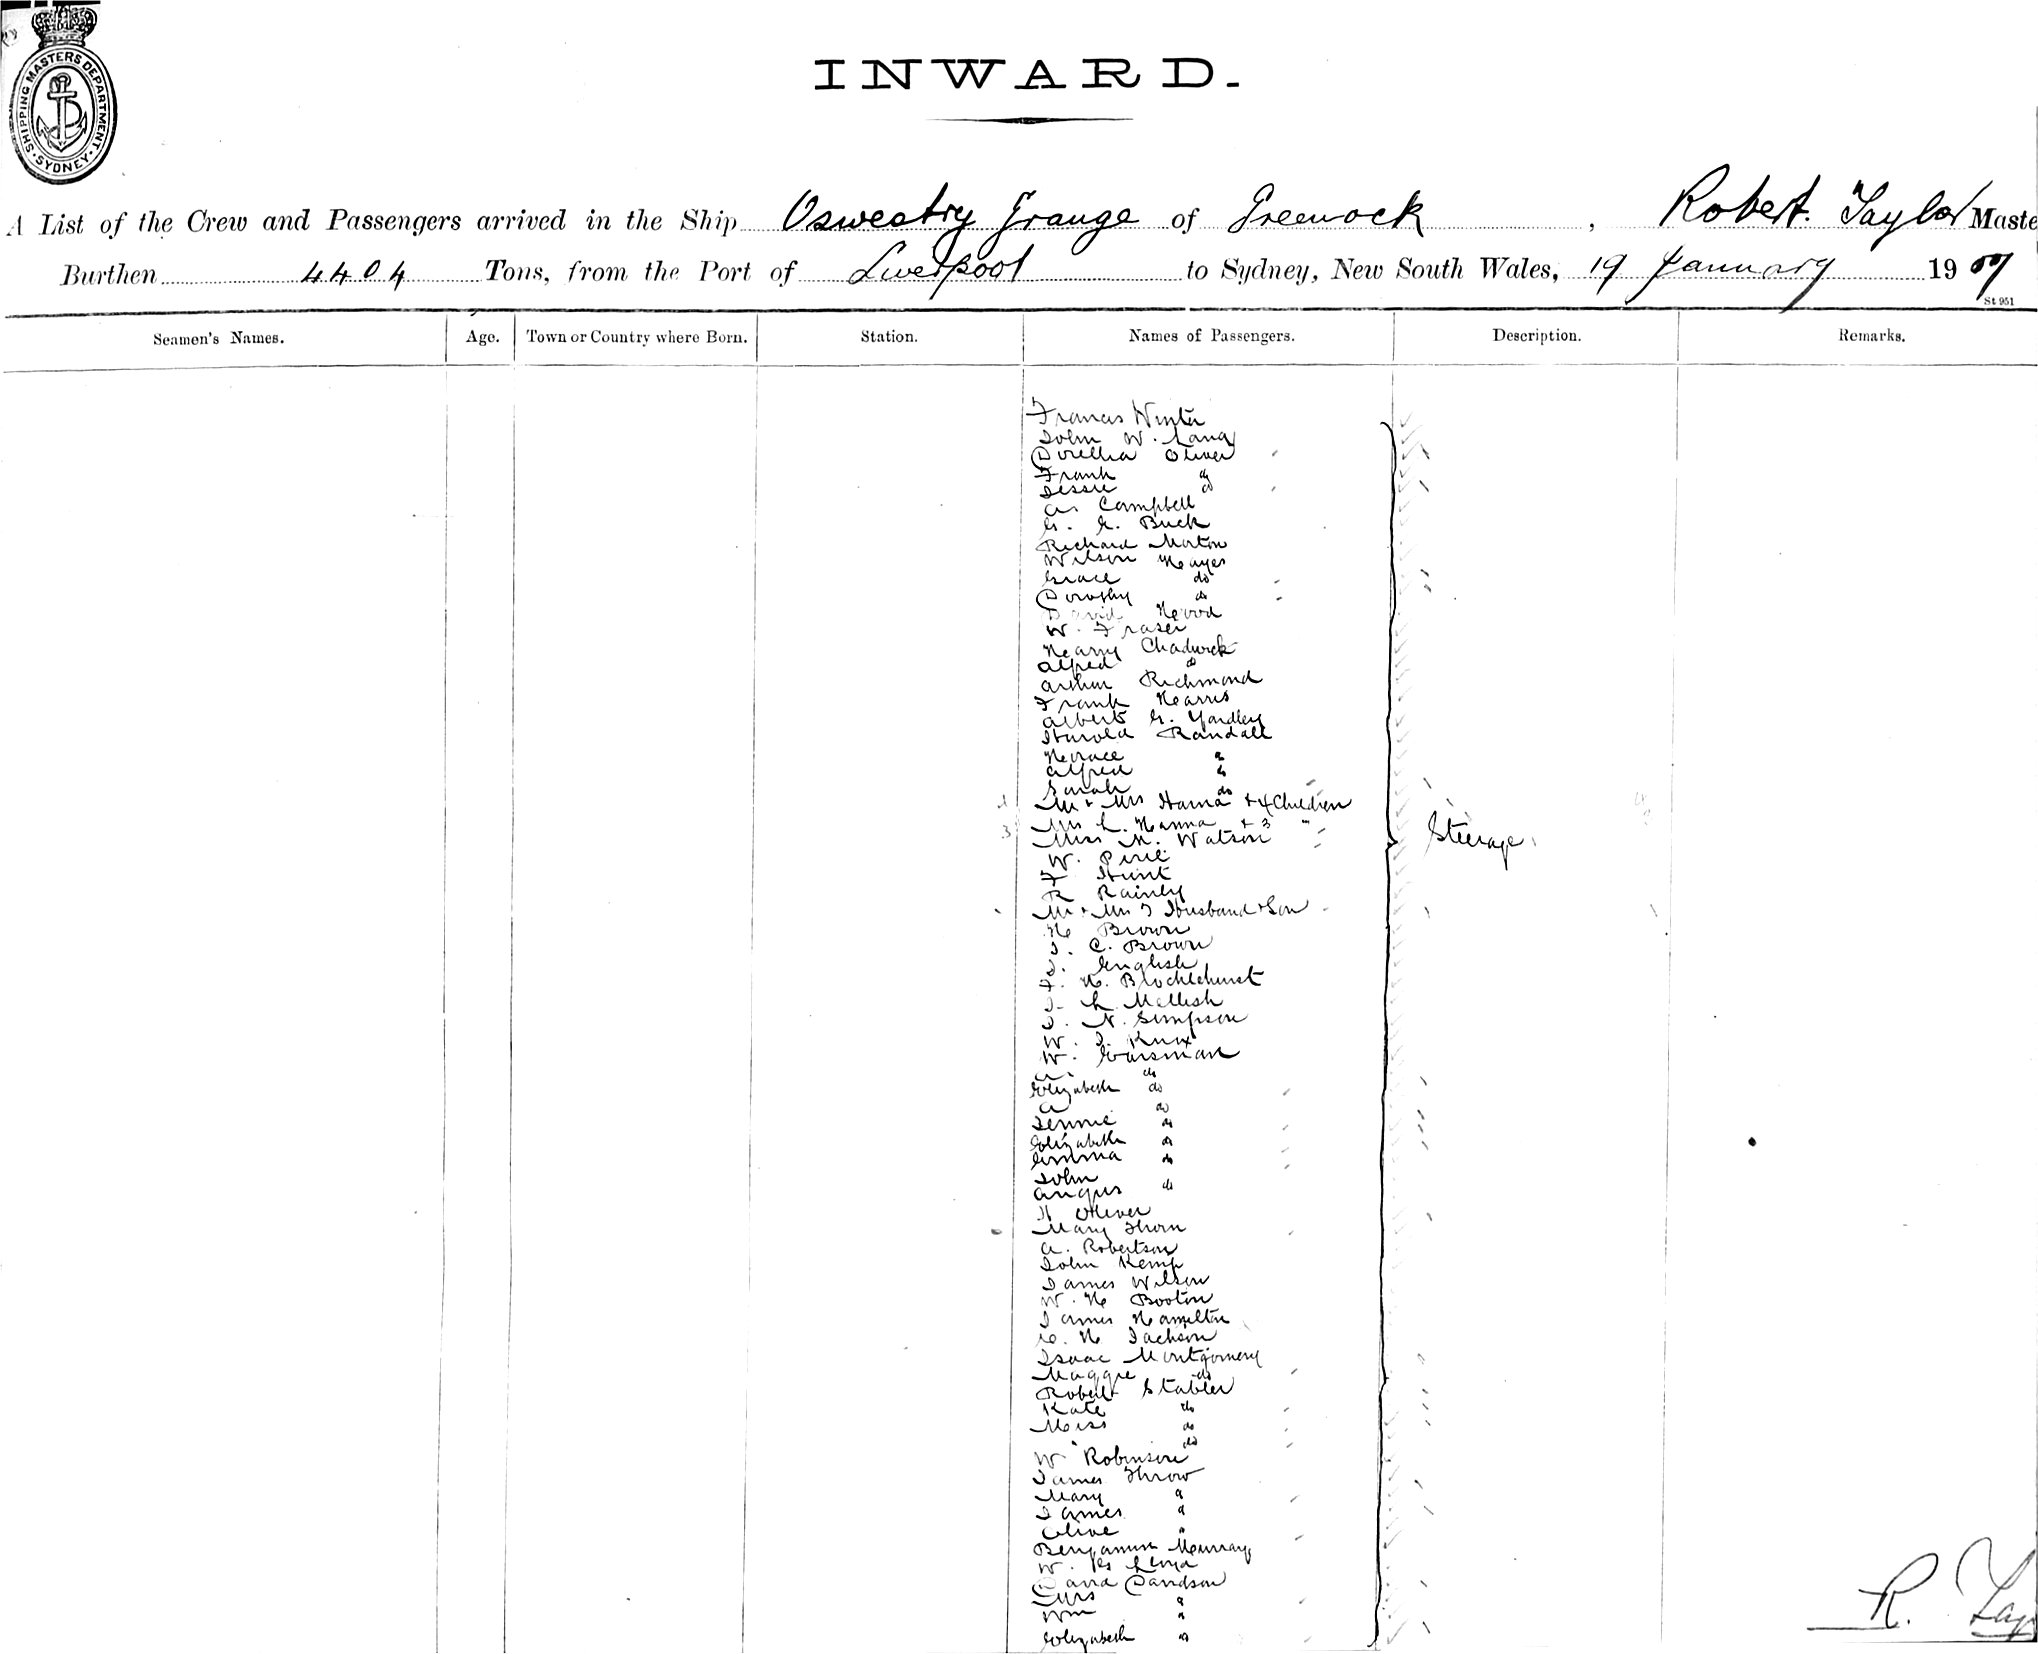 SHIPPING MASTERS DEPARTMENT. SYDNEY.
INWARD.
A List of the Crew and Passengers arrived in the Ship Oswestry Grange of Greenock, Robert Taylor Maste
Burthen 4404 Tons, from the Port of Liverpool to Sydney, New South Wales, 19 January 1907
St 951
Seamen's Names. Age. Town or Country where Born. Station. Names of Passengers. Description. Remarks.
Francis Winter
John W. Lang
Oliver
Frank do
Jessie do
A. Campbell
G. G. Buck
Richard Morton
Wilson Hayes
Grace do
Dorothy do
David Hood
W. Fraser
Harry Chadwick
Alfred do
Arthur Richmond
Frank Harris
Albert G. Yardley
Harold Randall
Horace "
Alfred "
Sarah do
Mr & Mrs Hanna & 4 Children
Mrs L. Hanna & 3 "
Miss M. Watson
Steerage
W. Pirie
F Hunt
R Rainey
Mr & Mrs J Husband & Son
H Brown
J. C. Brown
J. English
F. H. Brocklehurst
J. L. Mellish
J. N. Simpson
W. J. Knox
W. Gorsman
A. do
Elizabeth do
A do
Jennie do
Elizabeth do
Emma do
John
Angus do
H Oliver
Mary Thorn
A. Robertson
John Kemp
James Wilson
W. H Booton
James Hamilton
H Jackson
Isaac Montgomery
Maggie do
Robert Stabler
Kate do
Miss do
" do
W Robinson
James Throw
Mary "
James "
Olive "
Benjamin Murray
W. G Lloyd
David Davidson
Mrs "
Wm "
Elizabeth "
R. Tay